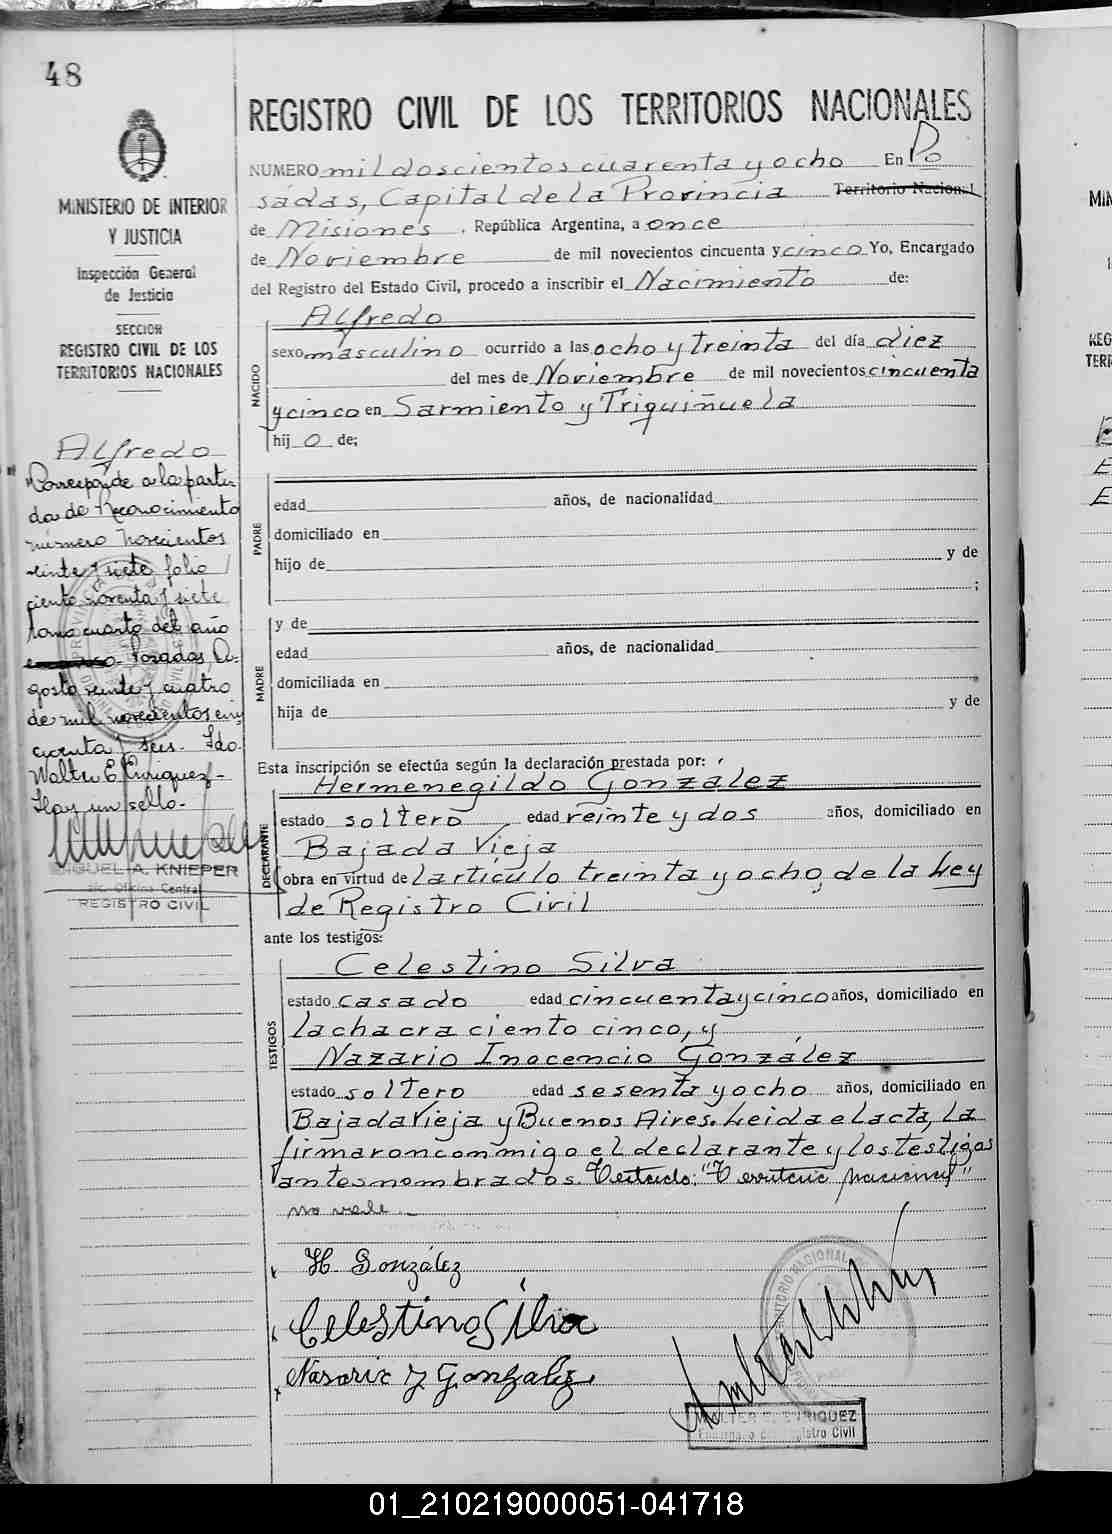 48
REGISTRO CIVIL DE LOS TERRITORIOS NACIONALES
MINISTERIO DE INTERIOR
Y JUSTICIA
Inspección General
de Justicia
SECCION
REGISTRO CIVIL DE LOS
TERRITORIOS NACIONALES
NUMERO mil doscientos cuarenta y ocho En Po
sadas, Capital de la Provincia Territorio Nacional
de Misiones, República Argentina, a once
de Noviembre de mil novecientos cincuenta y cinco Yo, Encargado
del Registro del Estado Civil, procedo a inscribir el Nacimiento de:
NACIDO
Alfredo
sexo masculino ocurrido a las ocho y treinta del día diez
del mes de Noviembre de mil novecientos cincuenta
y cinco en Sarmiento y Triquiñuela
hijo de;
Alfredo
Corresponde a la parti
da de Reconocimiento
número novecientos
veinte y siete folio
ciento noventa y siete
tomo cuarto del año
Posadas, A-
gosto veinte y cuatro
de mil novecientos cin
cuenta y seis. Fdo.
Walter E. Enriquez-
Hay un sello.-
MIGUEL A. KNIEPER
Oficina Central
REGISTRO CIVIL
PADRE
edad años, de nacionalidad
domiciliado en
hijo de y de
;
MADRE
y de
edad años, de nacionalidad
domiciliada en
hija de y de
Esta inscripción se efectúa según la declaración prestada por:
DECLARANTE
Hermenegildo Gonzalez
estado soltero edad veinte y dos años, domiciliado en
Bajada Vieja
obra en virtud del artículo treinta y ocho, de la Ley
de Registro Civil
ante los testigos:
TESTIGOS
Celestino Silva
estado casado edad cincuenta y cinco años, domiciliado en
la chacra ciento cinco, y
Nazario Inocencio González
estado soltero edad sesenta y ocho años, domiciliado en
Bajada Vieja y Buenos Aires. Leida el acta, la
firmaron conmigo el declarante y los testigos
antes nombrados. Testado: "Territorio Nacional"
no vale.-
H. González
Celestino Silva
Nasario Y Gonzalez
WALTER E. ENRIQUEZ
Encargado del Registro Civil
01_210219000051-041718